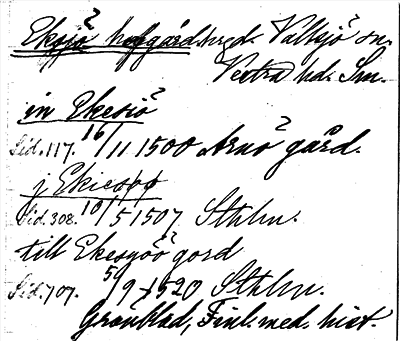 Eksjö hofgård. hgd. Vallsjö sn.
Vestra hd. Sm.
in Ekesiö
Sid. 117. 16/11 1500 Arnö gård.
j Ekiesøø
Sid. 308. 10/5 1507 Sthlm.
till Ekesyöö gord
Sid. 707. 5/9 1520 Sthlm.
Grönblad, Finl. med. hist.